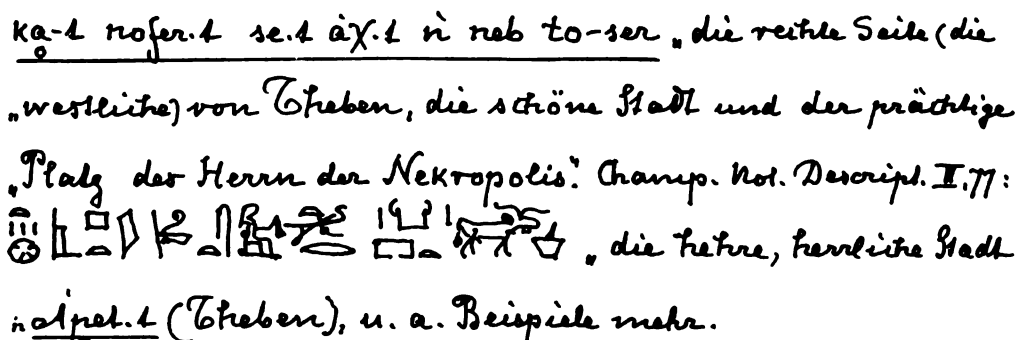 ka-t nofer.t se.t àχ.t ǹ neb to-ser „die rechte Seite (die
„westliche) von Theben, die schöne Stadt und der prächtige
„Platz der Herrn der Nekropolis“. Champ. Not. Descript. II, 77:
„die hehre, herrliche Stadt
ȧpet.t (Theben), u. a. Beispiele mehr.